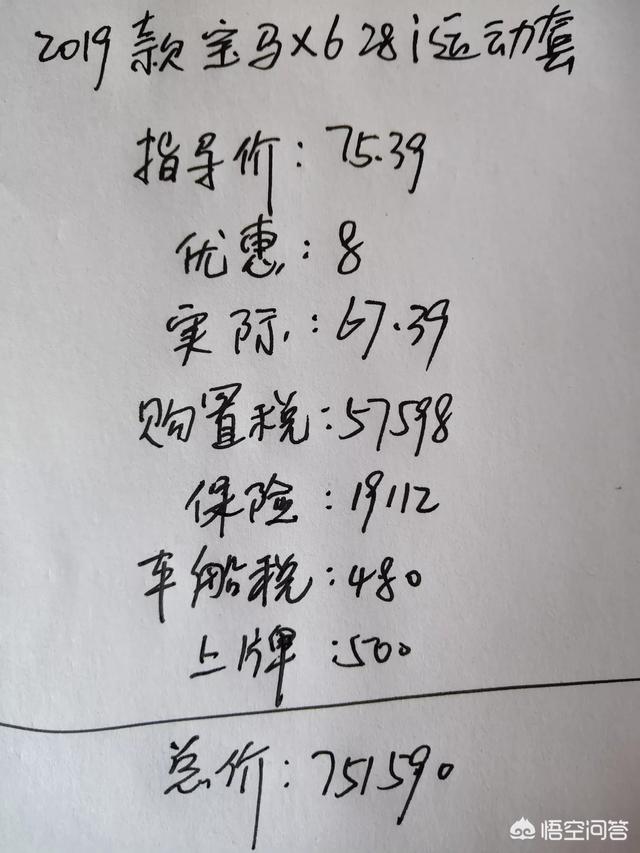 2019款宝马X6 28i运动套
指导价：75.39
优惠：8
实际：67.39
购置税：57598
保险：19112
车船税：480
上牌：500
总价：751590
悟空问答